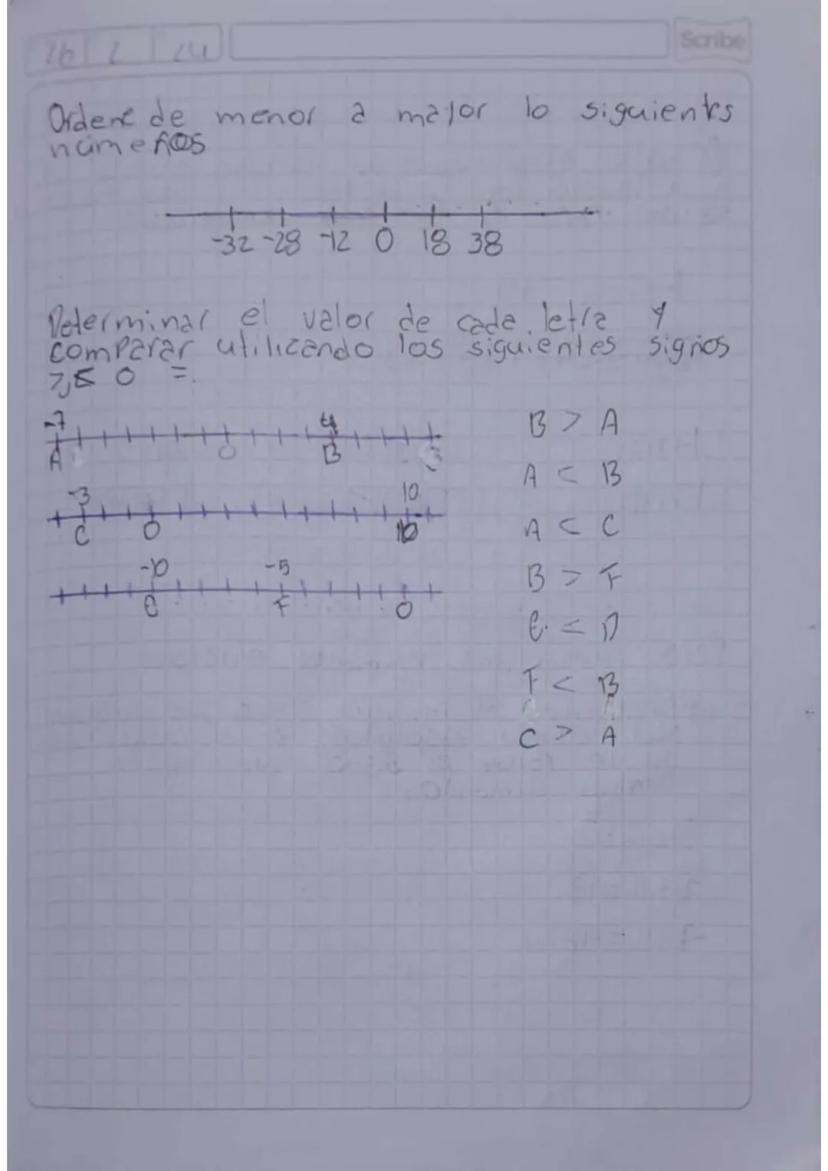 26 2 24
Scribe
Ordene de menor a mayor lo siguients
números
-32 -28 -12 0 18 38
Determinar el valor de cada letra y
comparar utilizando los siguientes signos
>,< o =.
-7 4
A 0 B
-3 10
C 0
-10 -5
E F 0
B > A
A < B
A < C
B > F
E < D
F < B
C > A